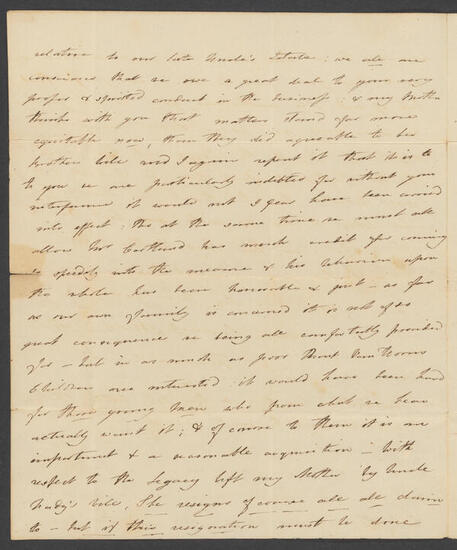 relative to our late Uncle's Estate: we all are
conscious that we owe a great deal to your very
proper & spirited conduct in the business: & my Mother
thinks with you that matters stand far more
equitable now, than they did agreeable to her
brothers Will and I again repent it that it is to
to you we are particularly indebted for without your
interference it would not I fear have been carried
into effect: tho at the same time we must all
allow Mr Cortland has much credit for coming
so speedily into the measure & his behaviour upon
the whole has been honourable & just — as far
as our own family is concerned it is not of so
great consequence we being all comfortably provided
for — but in as much as poor Aunt Van Horns
Children are interested: it would have been hard
for those young men who from what we hear
actually want it; & of course to them it is an
important & a reasonable acquisition — With
respect to the Legacy left my Mother by Uncle
Will, She resigns of course all all claim
to — but if this resignation must be done